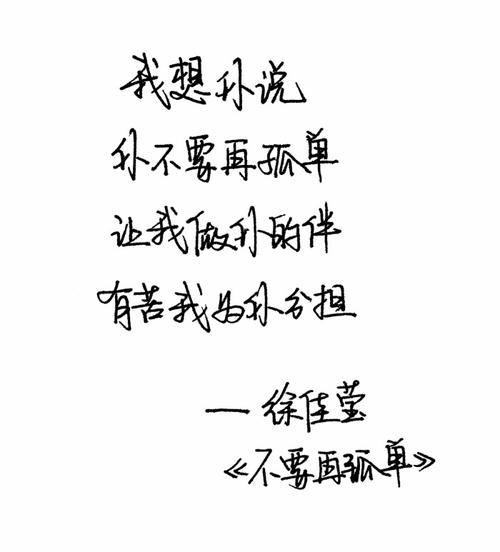 我想你说
你不要再孤单
让我做你的伴
有苦我为你分担
— 徐佳莹
《不要再孤单》